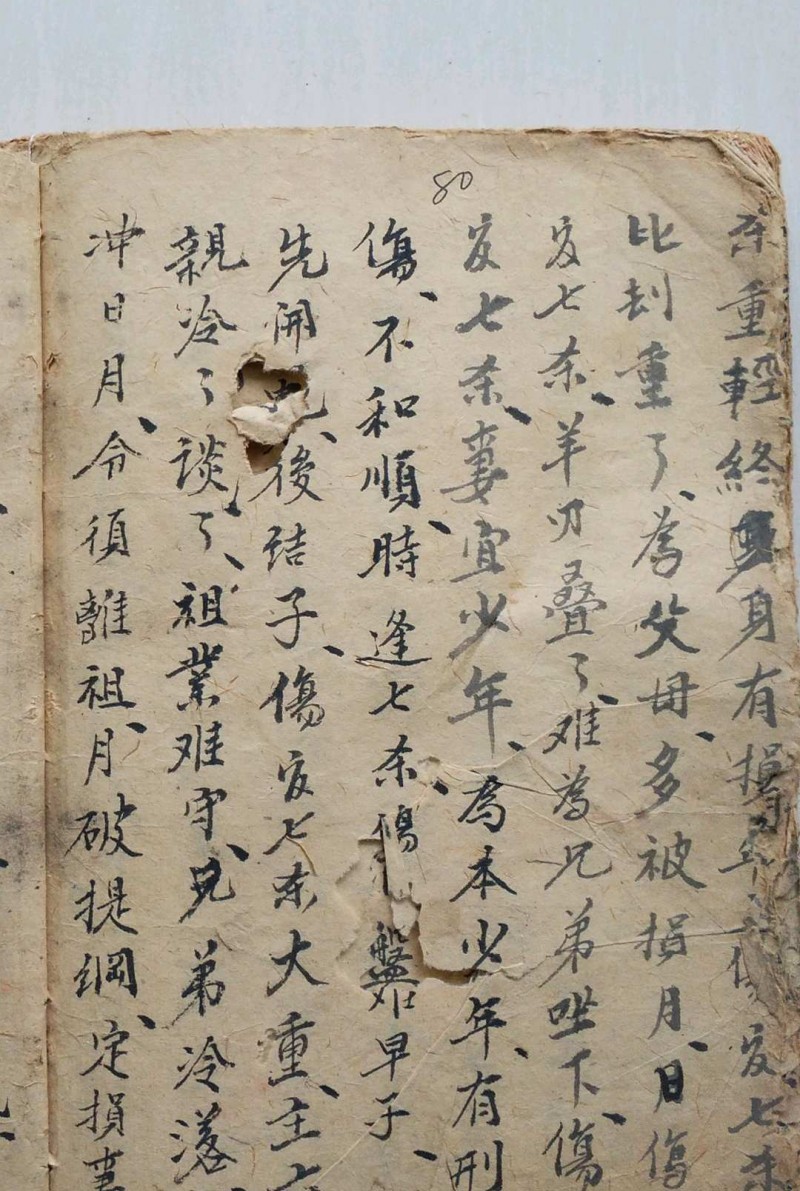 80
杀重輕終身有損年傷官七杀
比刦重了、為父母、多被損月、日傷
官七杀、羊刃叠了、难為兄弟坐下、傷
官七杀、妻宜少年、為本少年、有刑
傷、不和順、時逢七杀、傷盤早子、
先開花、後結子、傷官七杀大重、主
親冷了談了、祖業难守、兄弟冷落
冲日月、令須離祖、月破提綱、定損妻